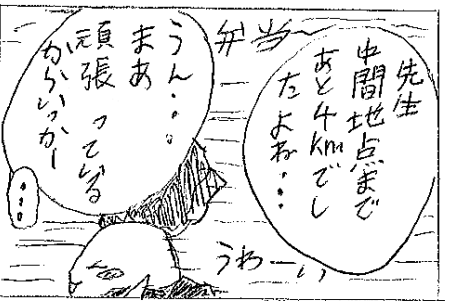 先生
中間地点まで
あと4kmでし
たよね・・・
弁当〜
うん・・・
まあ
頑張っている
からいっかー
・・・
うわーい